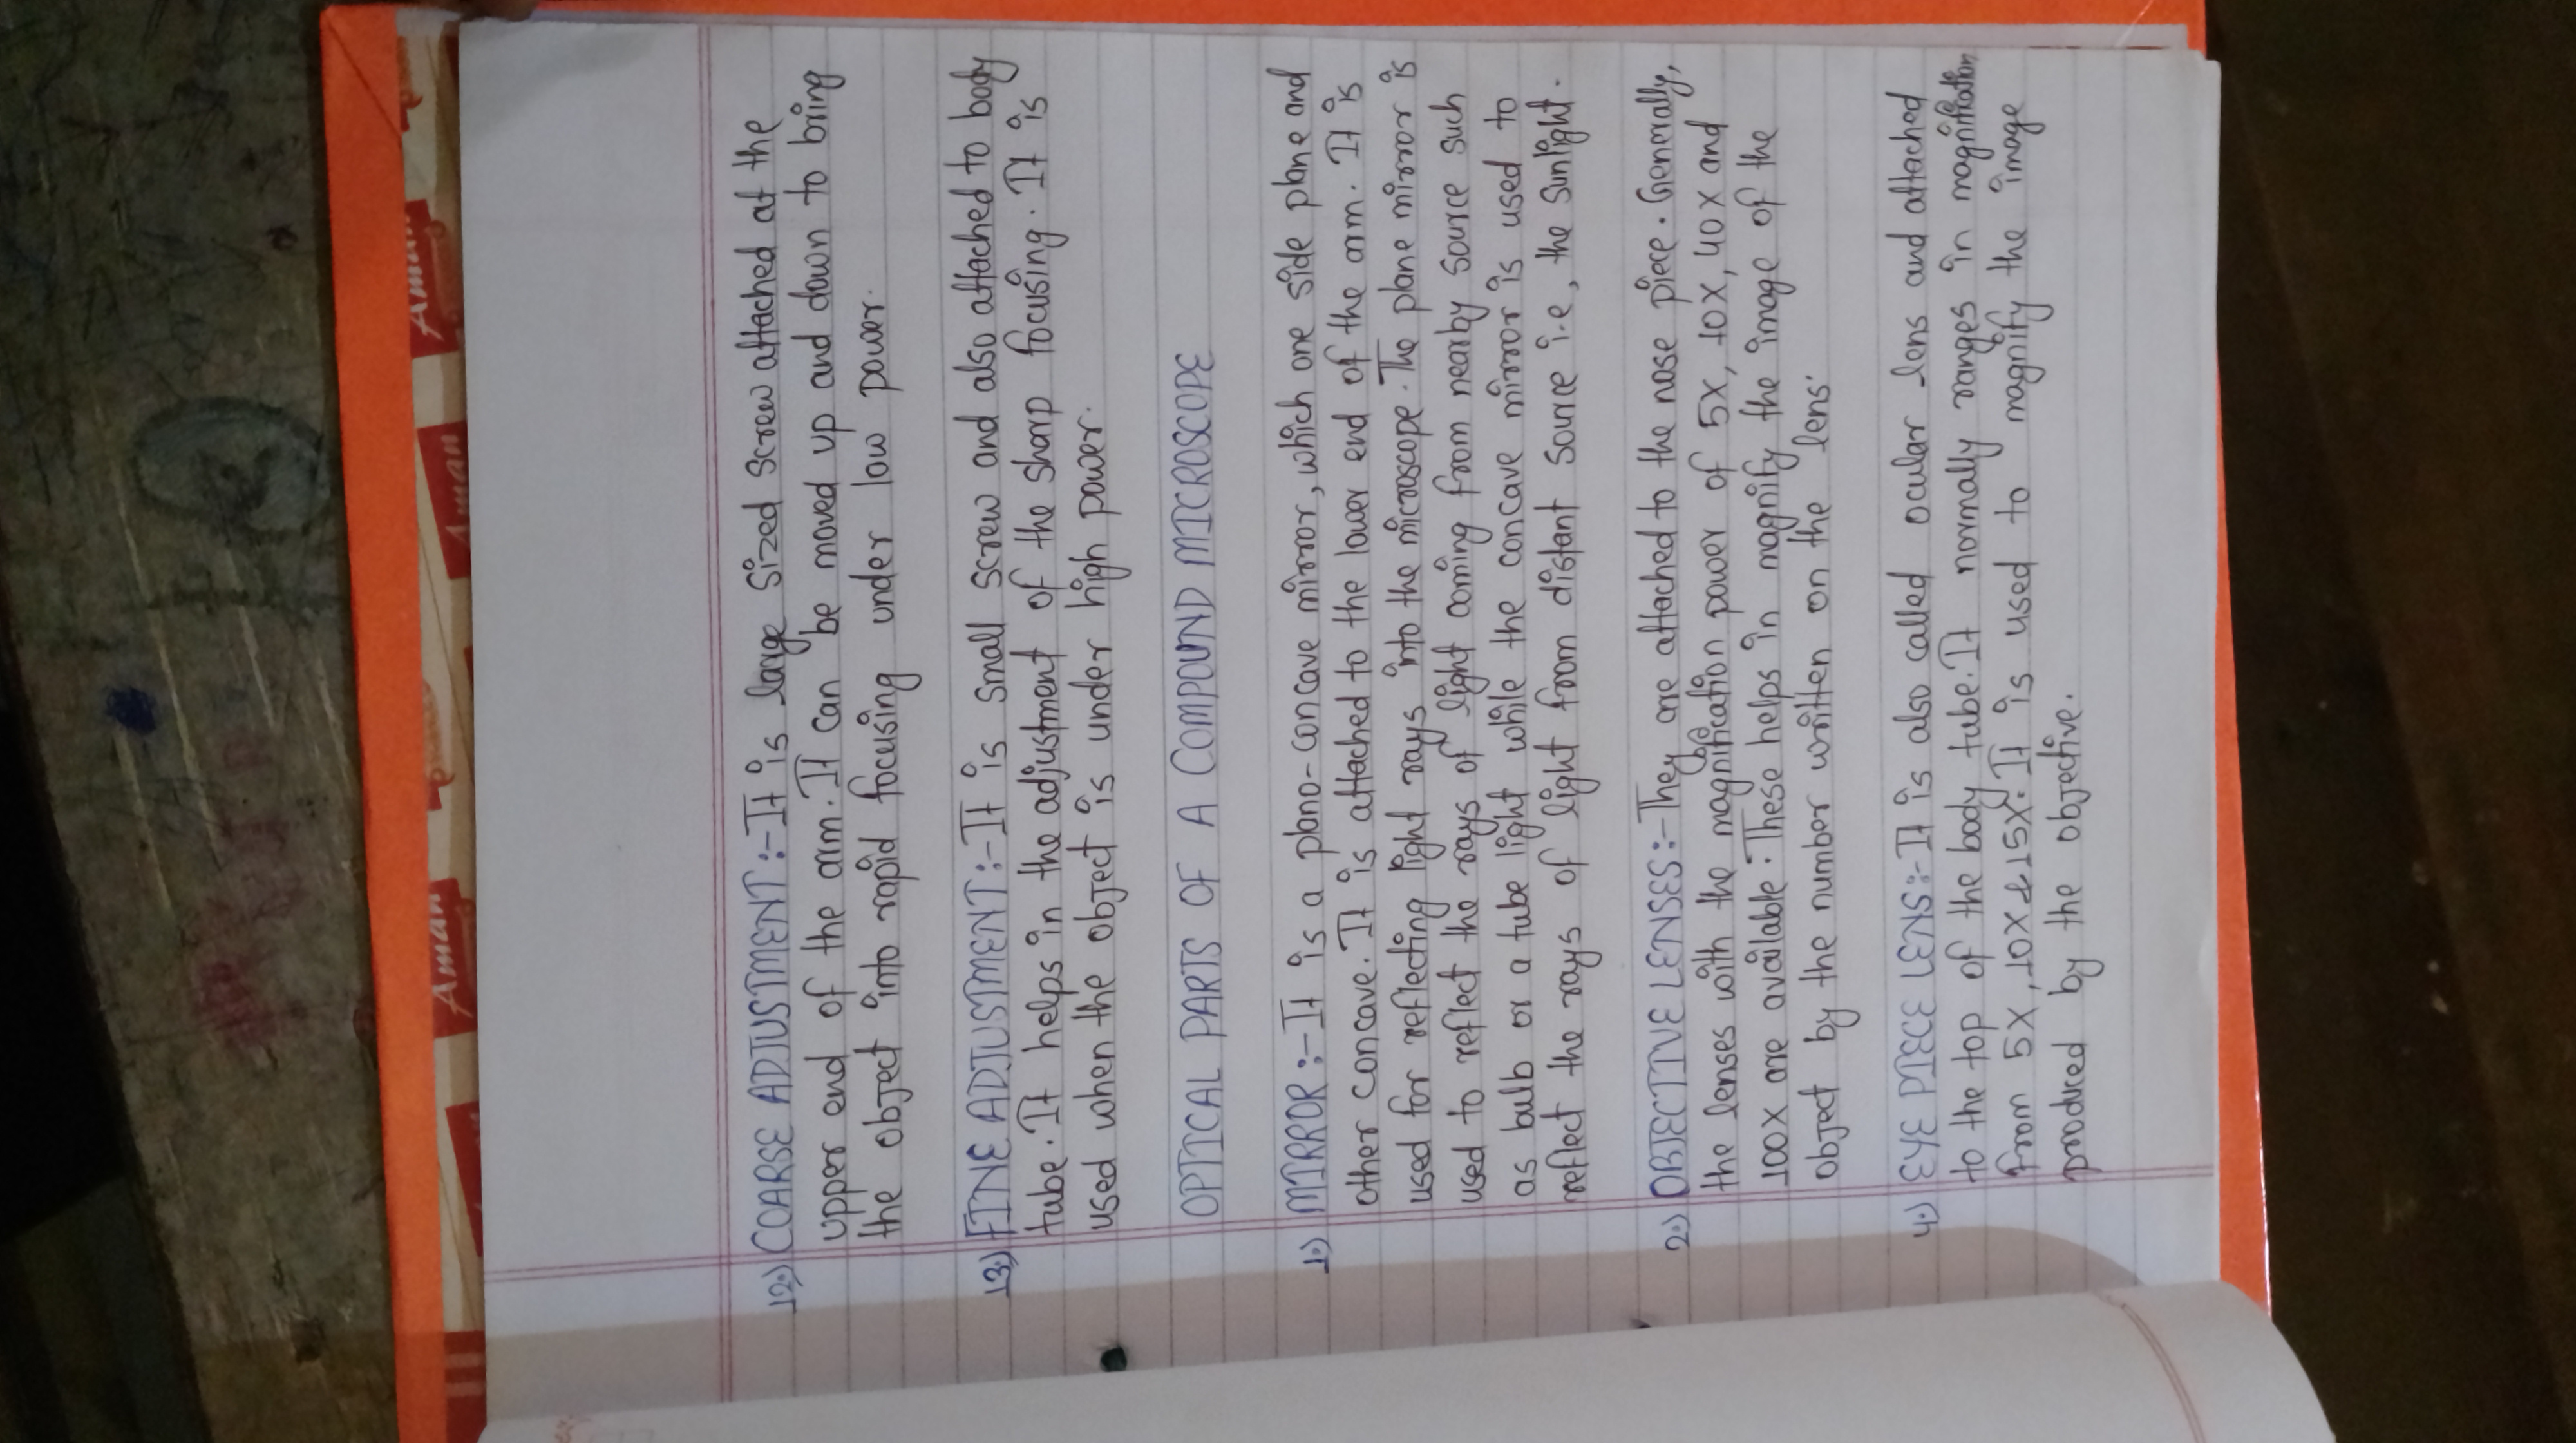 12.) COARSE ADJUSTMENT:- It is large sized screw attached at the
upper end of the arm. It can be moved up and down to bring
the object into rapid focusing under low power.
13.) FINE ADJUSTMENT:- It is small screw and also attached to body
tube. It helps in the adjustment of the sharp focusing. It is
used when the object is under high power.
OPTICAL PARTS OF A COMPOUND MICROSCOPE
1.) MIRROR:- It is a plano-concave mirror, which one side plane and
other concave. It is attached to the lower end of the arm. It is
used for reflecting light rays into the microscope. The plane mirror is
used to reflect the rays of light coming from nearby source such
as bulb or a tube light while the concave mirror is used to
reflect the rays of light from distant source i.e, the sunlight.
2.) OBJECTIVE LENSES:- They are attached to the nose piece. Generally,
the lenses with the magnification power of 5X, 10X, 40X and
100X are available. These helps in magnify the image of the
object by the number written on the lens.
4.) EYE PIECE LENS:- It is also called ocular lens and attached
to the top of the body tube. It normally ranges in magnification
from 5X, 10X & 15X. It is used to magnify the image
produced by the objective.
Aman
Aman
Aman